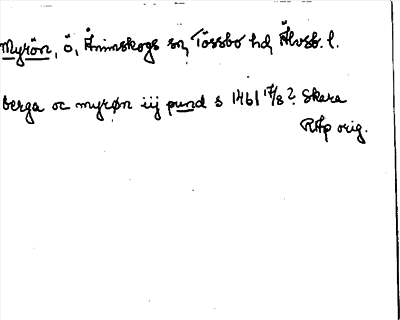 Myrön, ö, Ånimskogs sn, Tössbo hd, Älvsb. l.
berga oc myrøn iij pund s 1461 17/8? Skara
RAp orig.